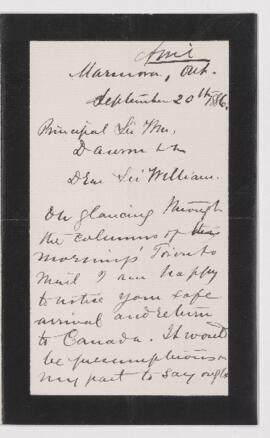 Marmora, Ont.
September 20th, 1886.
Principal Sir Wm,
Dawson
Dear Sir William.
On glancing through
the columns of this
mornings' Toronto
Mail I am happy
to notice your safe
arrival and return
to Canada. It would
be presumptions on
my part to say ought